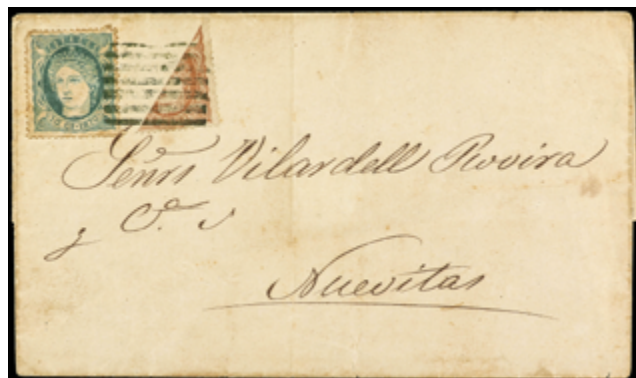 Senrs Vilardell Rovira
y Cª. s
Nuevitas